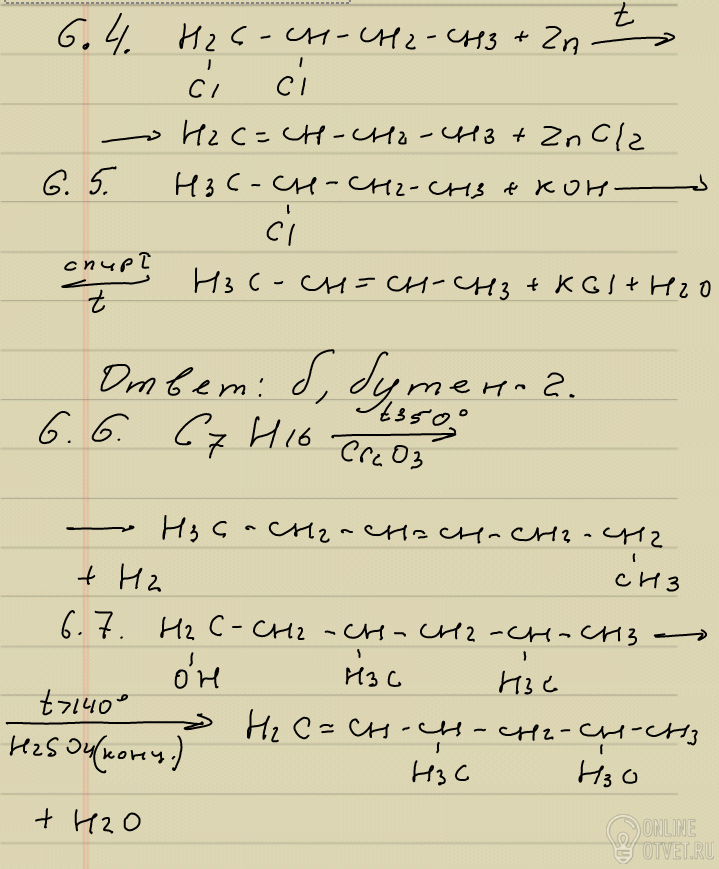 6.4. H2C - CH - CH2 - CH3 + Zn t→
Cl Cl
→ H2C = CH - CH2 - CH3 + ZnCl2
6.5. H3C - CH - CH2 - CH3 + KOH →
Cl
спирт
t H3C - CH = CH - CH3 + KCl + H2O
Ответ: б, бутен-2.
6.6. C7H16 t350° →
Cr2O3
→ H3C - CH2 - CH = CH - CH2 - CH2
+ H2 CH3
6.7. H2C - CH2 - CH - CH2 - CH - CH3 →
OH H3C H3C
t>140° →
H2SO4(конц.) H2C = CH - CH - CH2 - CH - CH3
H3C H3C
+ H2O
ONLINE
OTVET.RU